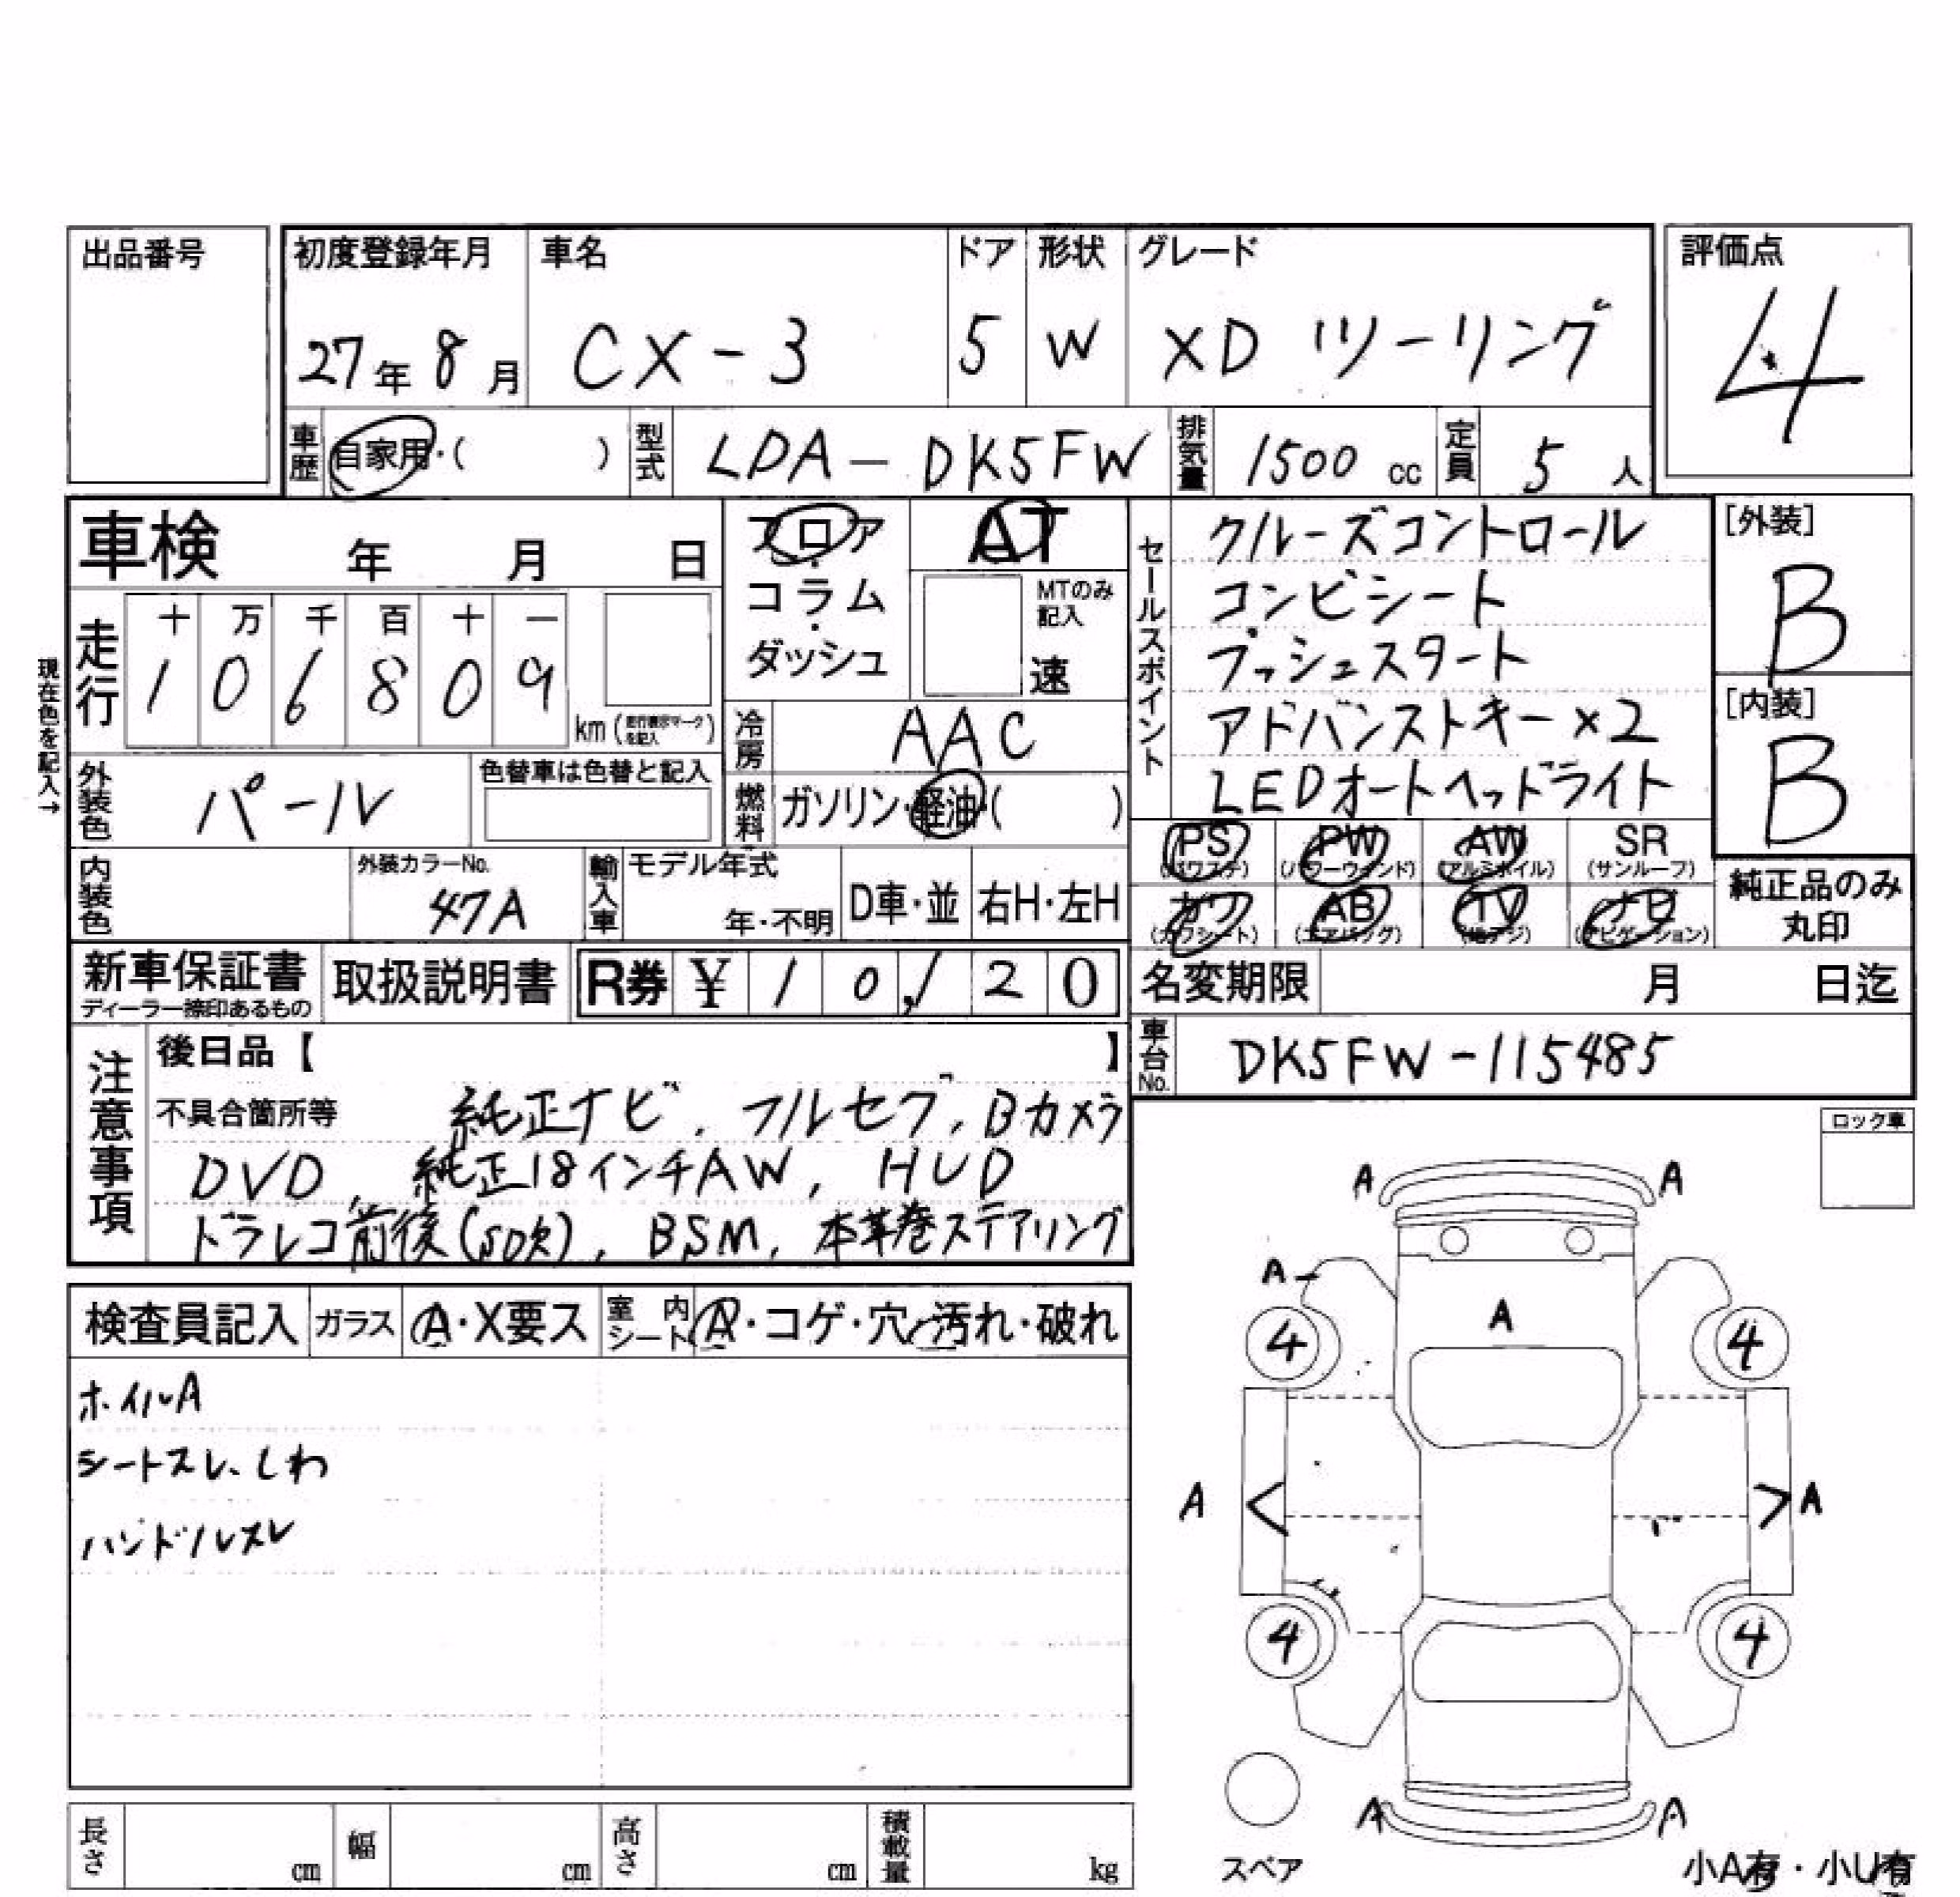 出品番号
初度登録年月 車名 ドア 形状 グレード 評価点
27年 8月 CX-3 5 W XD ツーリング 4
車歴 自家用・( ) 型式 LDA-DK5FW 排気量 1500 cc 定員 5 人
車検 年 月 日
フロア・コラム・ダッシュ
AT
MTのみ記入
速
セールスポイント
クルーズコントロール
コンビシート
プッシュスタート
アドバンストキー×2
LEDオートヘッドライト
[外装]
B
[内装]
B
現在色を記入→
走行
十 万 千 百 十 一
1 0 6 8 0 9
km (走行表示マークを記入)
冷房 AAC
外装色 パール 色替車は色替と記入
燃料 ガソリン・軽油・( )
PS (パワステ) PW (パワーウィンド) AW (アルミホイル) SR (サンルーフ)
カワ (カワシート) AB (エアバッグ) TV (地デジ) ナビ (ナビゲーション)
純正品のみ
丸印
内装色 外装カラーNo. 47A 輸入車 モデル年式 年・不明 D車・並 右H・左H
新車保証書 ディーラー捺印あるもの 取扱説明書 R券 ¥ 1 0, 1 2 0
名変期限 月 日迄
車台No. DK5FW-115485
注意事項
後日品【 】
不具合箇所等 純正ナビ、フルセグ、Bカメラ
DVD、純正18インチAW、HUD
ドラレコ前後(SD欠)、BSM、本革巻ステアリング
ロック車
検査員記入 ガラス A・X要ス 室内シート A・コゲ・穴・汚れ・破れ
ホイルA
シートスレ、しわ
ハンドルスレ
A A
A
A
4 4
A < > A
4 4
A A
スペア
小A有・小U有
長さ cm 幅 cm 高さ cm 積載量 kg